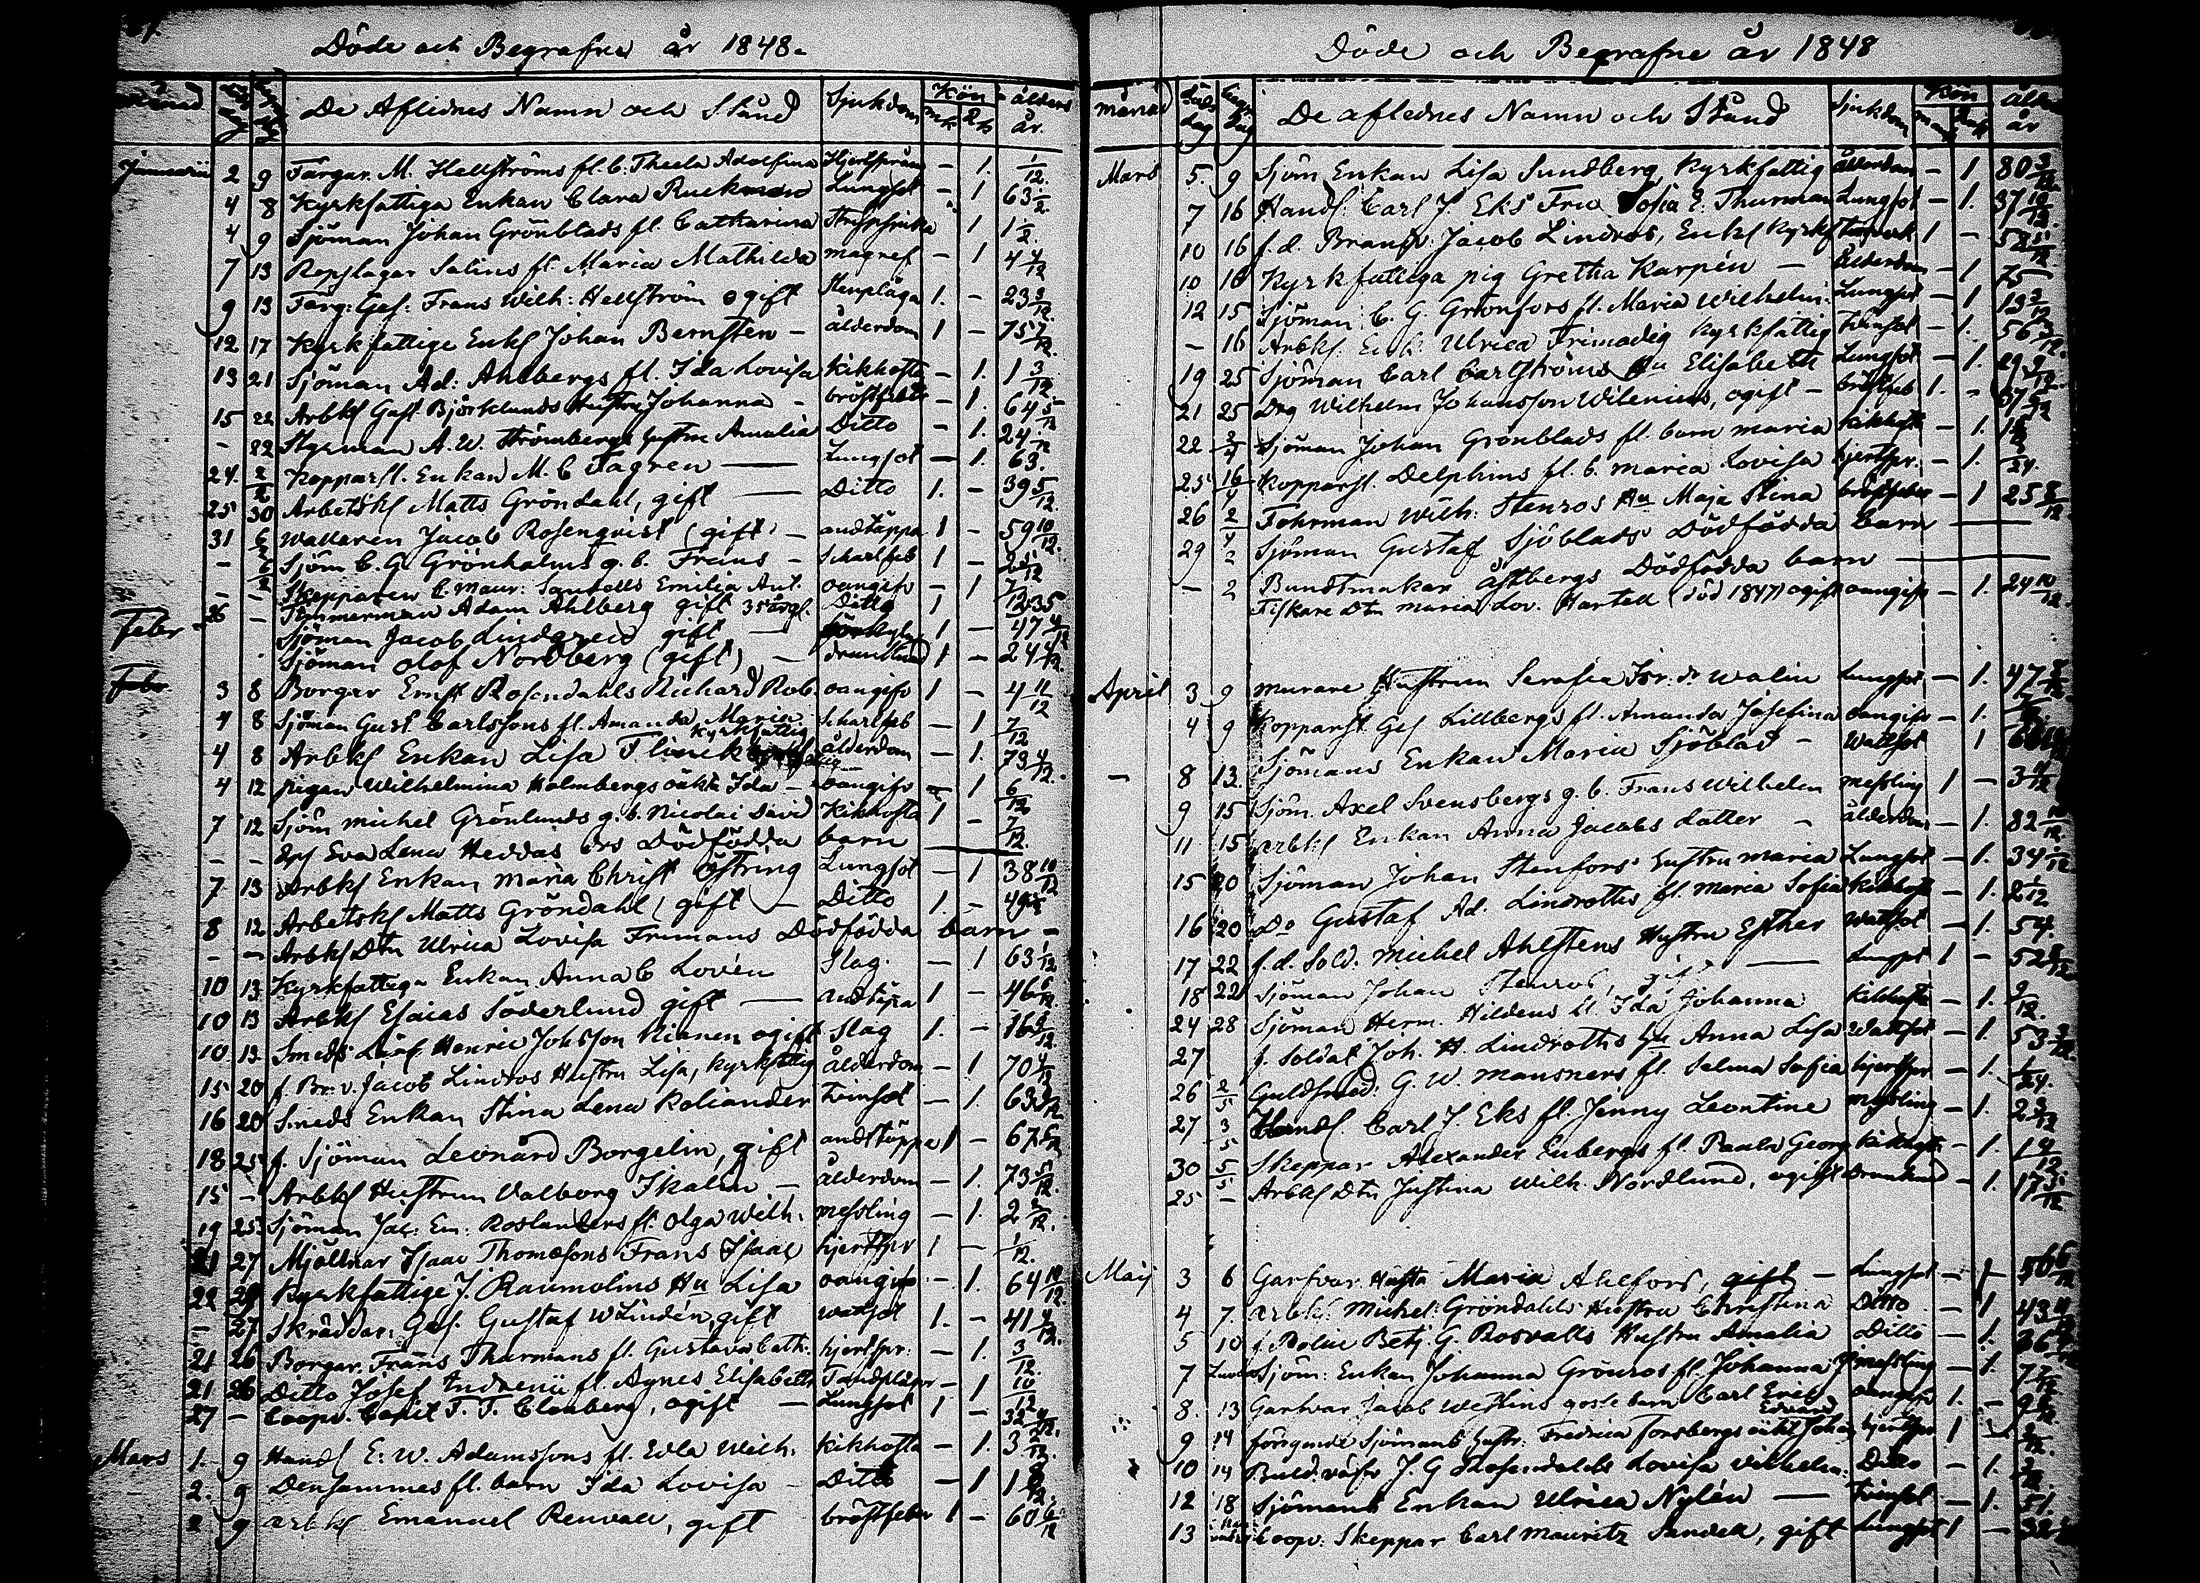 Döde och Begrafne år 1848.
månad De Aflidnes Namn och Stånd Sjukdom Kön mk qk ålders år.
Januarii 2 9 Färgar. M. Hellströms fl. b. Thecla Adolfina Hjertspräng – 1. 1/12.
4 8 Kyrkfattiga Enkan Clara Ruckman Lungsot – 1 63 1/2
4 9 Sjöman Johan Grönblads fl. Catharina – 1 1 1/2.
7 13 Repslagar Salins fl. Maria Mathilda magref – 1 4 4/12
9 13 Färg: Ges: Frans Wilh: Hellström ogift Stenplåga 1. – 23 2/12.
12 17 Kyrkfattige Enkl Johan Bernsten – ålderdom 1 – 75 7/12.
13 21 Sjöman Ad: Ahlbergs fl. Ida Lovisa Kikhosta – 1. 1 3/12.
15 22 Arbkl Gust. Björklunds Hustru Johanna – bröstfeber – 1. 64 5/12
– 22 Styrman A. W. Strömbergs hustru Amalia Ditto – 1. 24
24. 2/2 Kopparsl. Enkan M. C Fagren — Lungsot – 1. 63.
25 30 Arbetskl Matts Gröndahl, gift — Ditto 1. – 39 5/12.
31 6/2 Wallaren Jacob Rosenqvist (gift) – andtäppa 1 – 59 10/12.
– 6/2 Sjöm C. G. Grönholms g. b. Frans – Scharlfeb 1 – 2 5/12
– Skepparen C. Maur: Sandells Emilia Ant. oangifv – 1 7/12
Febr 26 – Timmerman Adam Ahlberg gift 35 årgl. Ditto 1 35
Sjöman Jacob Lindgren gift — 1 – 47 4/12
Sjöman Olof Nordberg (gift) – drunknad 1 – 24 4/12.
Febr. 3 8 Borgar Ernst Rosendahls Richard Rob. oangifv 1 – 4 11/12
4 8 Sjöman Gust Carlssons fl. Amanda Maria Scharlfeb – 1 7/12
4 8 Arbkl Enkan Lisa Flinck Kyrkfattig ålderdom – 1. 73 4/12.
4 12 pigan Wilhelmina Holmbergs oäkta Ida – oangifv – 1 6/12
7 12 Sjöm Michel Grönlunds g. b. Nicolai David Kikhosta 1 – 7/12.
– – Eva Lena Heddas Dödfödda barn —
7 13 Arbkl Enkan Maria Christ Östring Lungsot – 1 38 10/12
8 12 Arbetskl Matts Gröndahl (gift) – Ditto 1. – 49
– – Arbkl Dtr Ulrica Lovisa Frimans Dödfödda barn –
10 13 Kyrkfattiga Enkan Anna C Lovén Slag. – 1 63 1/12
10 13 Arbkl Esaias Söderlund gift — andtäpa 1 – 46 6/12
10 13 Smeds Lärl Henric Johsson Kinnen ogift Slag 1. – 16 9/12
15 20 f. Br. v. Jacob Lindros Hustru Lisa, Kyrkfattig ålderdom – 1 70 4/12
16 20 Smeds Enkan Stina Lena Koliander Tvinsot – 1. 63
18 25 f. Sjöman Leonard Borgelin, gift andtäppa 1 – 67
15 – Arbkl Hustrun Valborg Skalm – ålderdom – 1. 73 5/12.
19 25 Sjöman Jac: Em: Roslanders fl. Olga Wilh. messling – 1. 2 2/12.
21 27 Mjöllnar Isaac Thomæsons Frans Isaac hjertspr 1 – 1/12.
22 28 Kyrkfattige J. Raumolins Hu Lisa oangifv – 1. 64 10/12.
– 27 Skräddar. Ges. Gustaf W Lindén, gift watsot 1. – 41 4/12.
21 26 Borgar. Frans Thurmans fl. Gustava Cath. hjertspr. – 1. 3/12.
21 26 Ditto Josef Indrenii fl. Agnes Elisabeth Tandplågor – 1 10/12
27 – Coopv. Capit F. F. Clouberg, ogift – Lungsot 1 – 32
Mars 1. 9 Handl E. W. Adamssons fl. Edla Wilh. kikhosta – 1. 3
2. 9 Densammes fl. barn Ida Lovisa – Ditto – 1 1
2 9 Arbkl Emanuel Renvall, gift bröstfeber 1 – 60 6/12
Döde och Begrafne år 1848
månad döds dag begr. dag De aflednes Namn och Stånd Sjukdom Kön ålder år
Mars 5. 9 Sjöm Enkan Lisa Sundberg, Kyrkfattig ålderdom – 1 80 3/12
7 16 Handl: Carl J. Eks Fru Sofia E. Thurman Lungsot – 1. 37 10/12
10 16 f. d. Brandv. Jacob Lindros, Enkl Kyrkf 1 – 52 5/12
10 16 Kyrkfattiga pig Gretha Karpén – ålderdom – 1 75
12 15 Sjöman C. G. Grönfors fl. Maria Wilhelm: Lungsot – 1 13 3/12
– 16 Arbkl. Enk. Ulrica Frimodig Kyrkfattig Tvinsot – 1. 56 3/12.
19 25 Sjöman Carl Carlströms Hu Elisabeth Lungsot – 1. 29 9/12.
21 25 Drg Wilhelm Johansson Wilenius, ogift – bröstfeb 1. – 37 6/12
22 2/4 Sjöman Johan Grönblads fl. barn Maria kikhost – 1.
25 16/4 Kopparsl. Delphins fl. b. Maria Lovisa hjertspr. – 1. 1/24.
26 2/4 Fohrman Wilh: Stenros Hu Maja Stina bröstfeber – 1 25 8/12
29 2 Sjöman Gustaf Sjöblads Dödfödda barn —
– 2 Bundtmakar Åstbergs Dödfödda barn —
Fiskare Dtr Maria Lov. Hartell (död 1847) ogift oangifv – 1. 24 10/12.
April 3 9 Murare Hustrun Serafia Isr. dr Walin Lungsot – 1. 47
4 9 Kopparsl Ges Lillbergs fl. Amanda Josefina oangifv – 1.
– 8 13. Sjömans Enkan Maria Sjöblad – Wattsot 1
9 15 Sjöm. Axel Svensbergs g. b. Frans Wilhelm messling 1 – 3 4/12
11 15 Arbkl Enkan Anna Jacobs Dotter – ålderdom – 1. 82 10/12.
15 20 Sjöman Johan Stenfors Hustru Maria Lungsot – 1. 34
16 20 Do Gustaf Ad. Lindroths fl. Maria Sofia Kikhost – 1. 2 1/12
17 22 f. d. Sold. Michel Ahlstens Hustru Esther Wattsot – 1. 54.
18 22 Sjöman Johan Stenros, gift — Lungsot 1 – 52
24 28 Sjöman Herm. Hildens fl. Ida Johanna Kikhosta – 1. 9/12.
27 f. Soldat Joh. H. Lindroths Hu Anna Lisa Wattsot – 1. 53 3/12.
26 2/5 Guldsmed. G. W. Mansners fl. Selma Sofia hjertspr – 1. 1/24.
27 3/5 Handl. Carl J. Eks fl. Jenny Leontine messling – 1. 2
30 5/5 Skeppar Alexander Enbergs fl. Paula Georg kikhost – 1. 1
25 – Arbkl Dtr Justina Wilh. Nordlund, ogift Drunknad – 1. 17
Maij 3 6 Garfvar. Husta Maria Ahlfors, gift – Lungsot – 1 56
4 7 Arbkl. Michel Gröndahls Hustru Christina Ditto – 1 43
5 10 f. Police Betj. G. Rosvalls Hustru Amalia Ditto – 1. 36
7 Sjöm: Enkan Johanna Grönros fl. Johanna messling – 1.
8. 13 Garfvar Jacob Westlins gosse barn Carl Eric Edvard oangifv 1. –
9 14 förrymde Sjömans hustr: Fredrica Forsbergs oäkt Johan hjertspr 1 –
10 14 J. G Rosendahls Lovisa Wilhelm: Ditto – 1.
12 18 Sjömans Enkan Ulrica Nylén — Tvinsot – 1. 51
13 Coopv: Skeppar Carl Mauritz Sandell, gift Lungsot 1 –